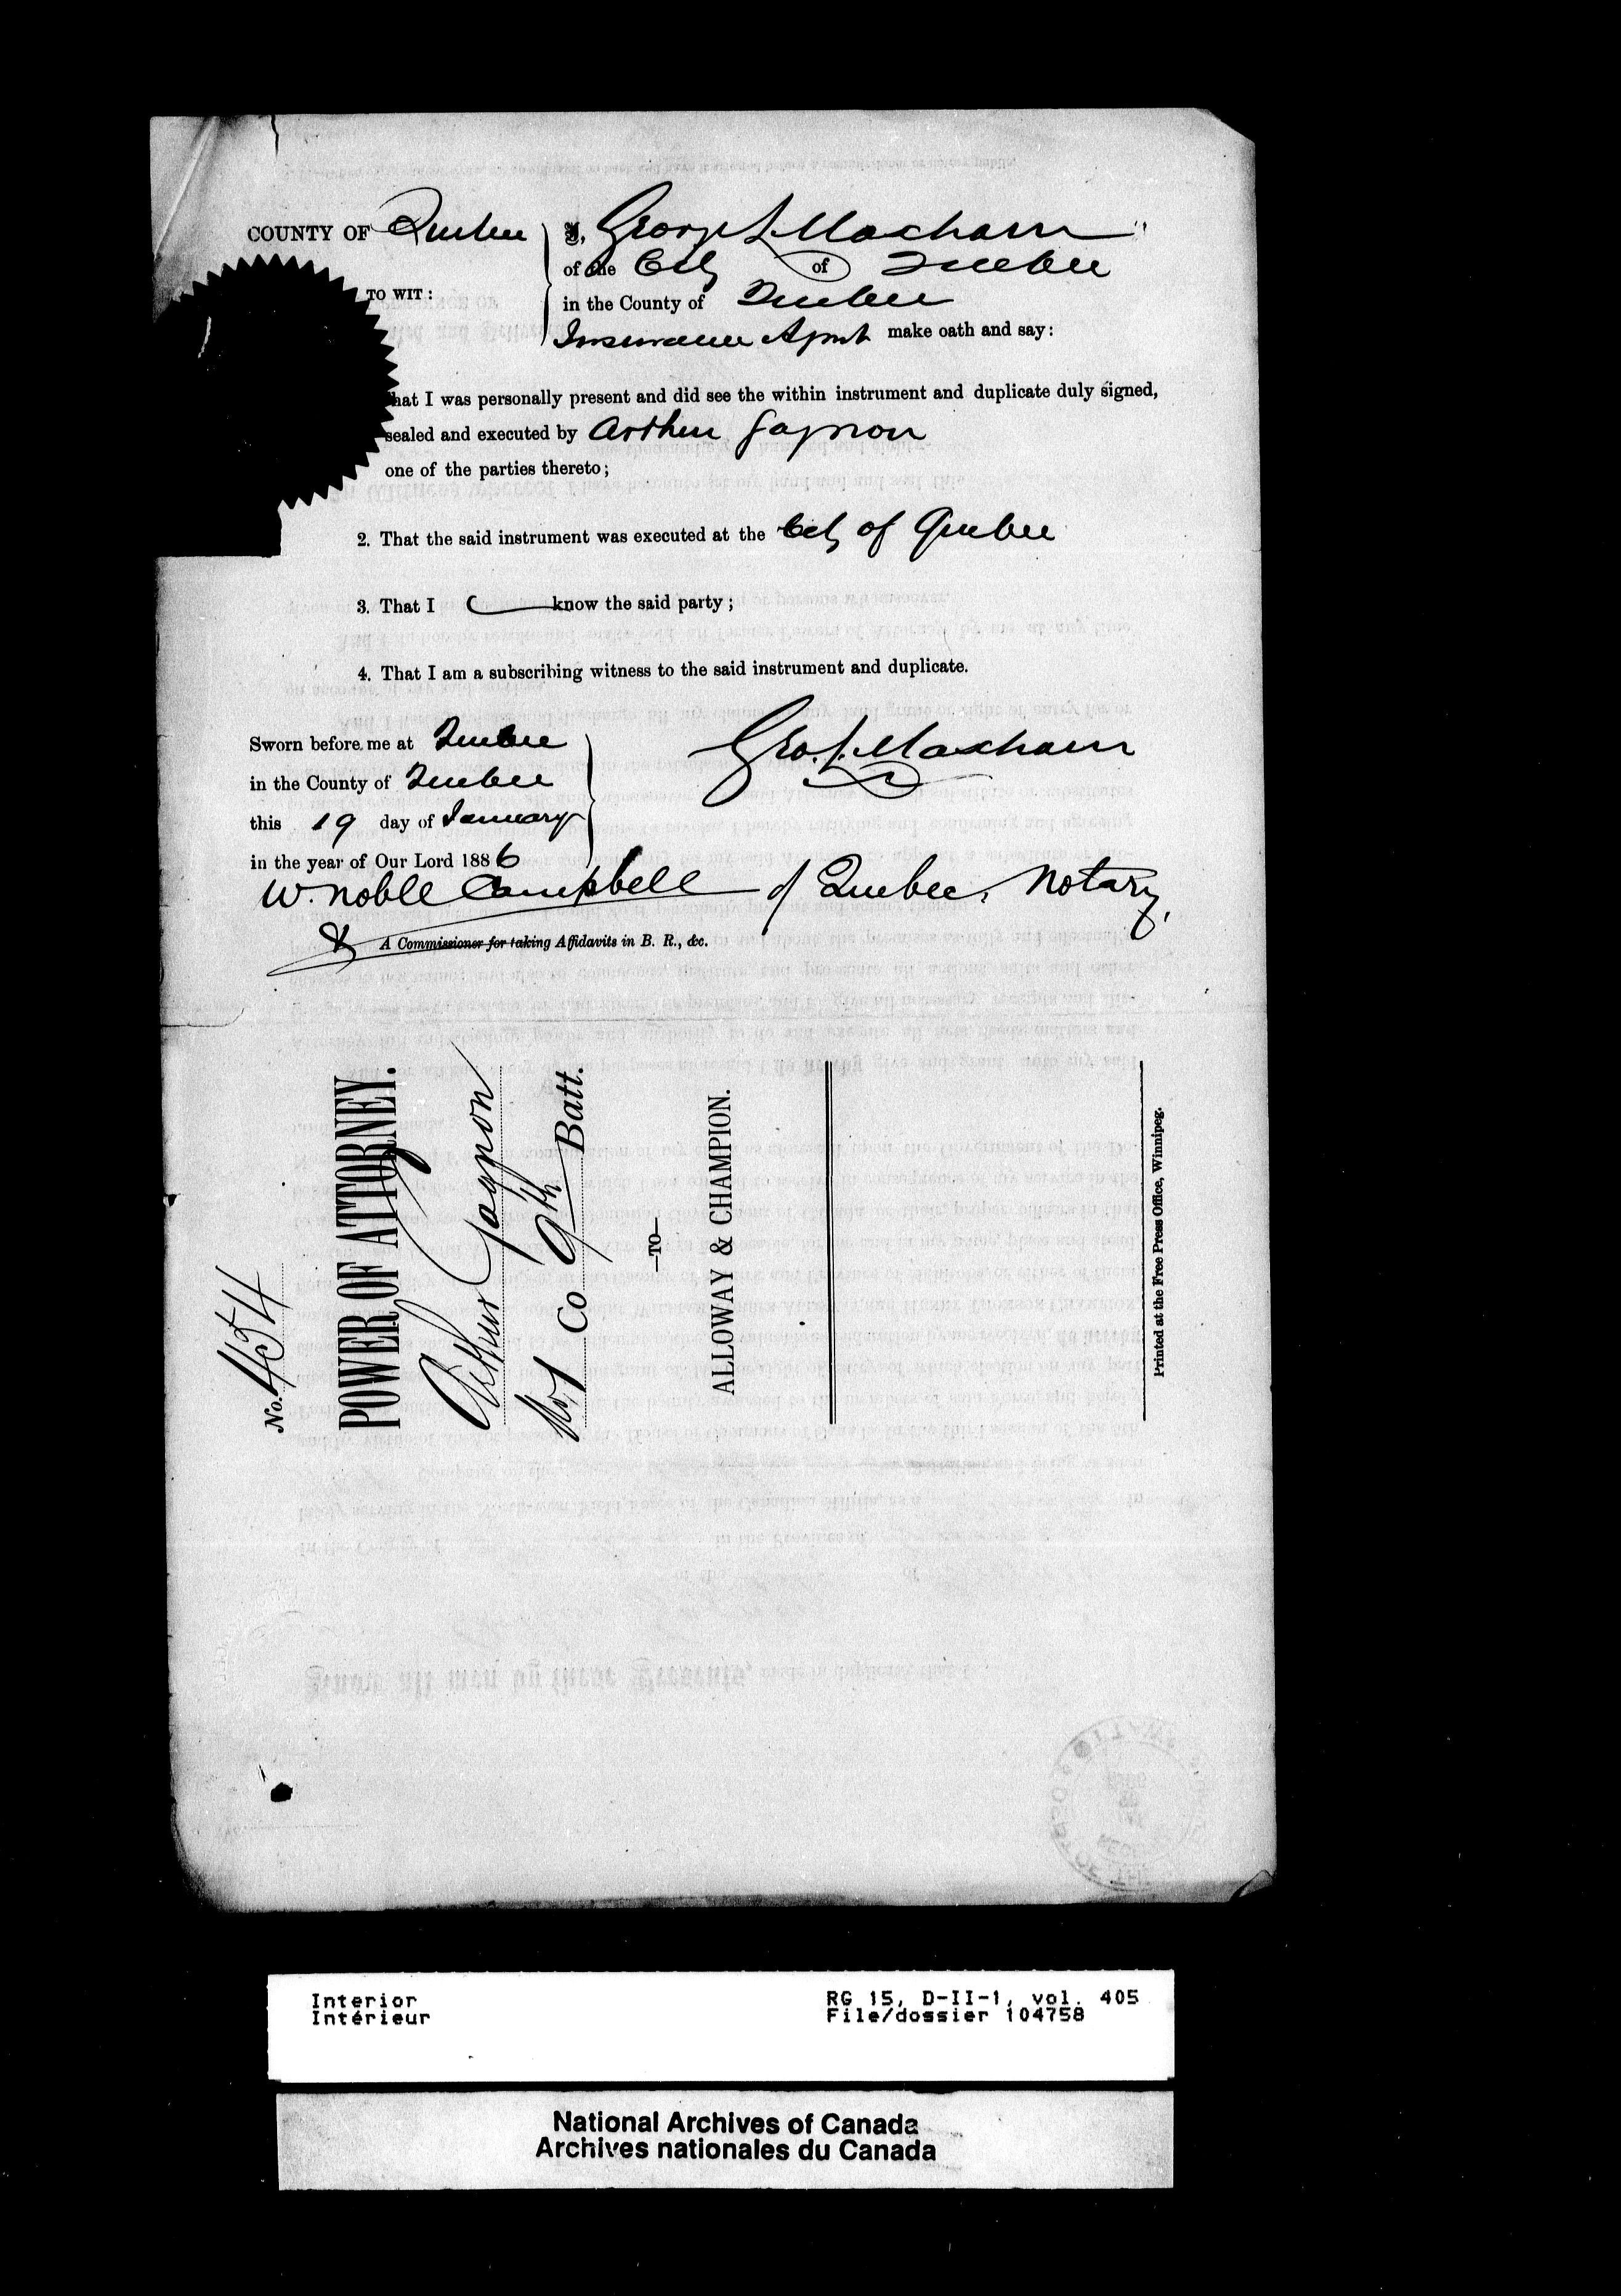 COUNTY OF Quebec
TO WIT:
I, George S. Maxham
of the City of Quebec
in the County of Quebec
Insurance Agent make oath and say:
hat I was personally present and did see the within instrument and duplicate duly signed,
sealed and executed by Arthur Gagnon
one of the parties thereto;
2. That the said instrument was executed at the City of Quebec
3. That I know the said party;
4. That I am a subscribing witness to the said instrument and duplicate.
Sworn before me at Quebec
in the County of Quebec
this 19 day of January
in the year of Our Lord 1886
Geo. S. Maxham
W. Noble Campbell of Quebec, Notary,
& A Commissioner for taking Affidavits in B. R., &c.
No. 454
POWER OF ATTORNEY.
Arthur Gagnon
No 1 Co 9th Batt.
—TO—
ALLOWAY & CHAMPION.
Printed at the Free Press Office, Winnipeg.
Interior
Intérieur
RG 15, D-II-1, vol. 405
File/dossier 104758
National Archives of Canada
Archives nationales du Canada